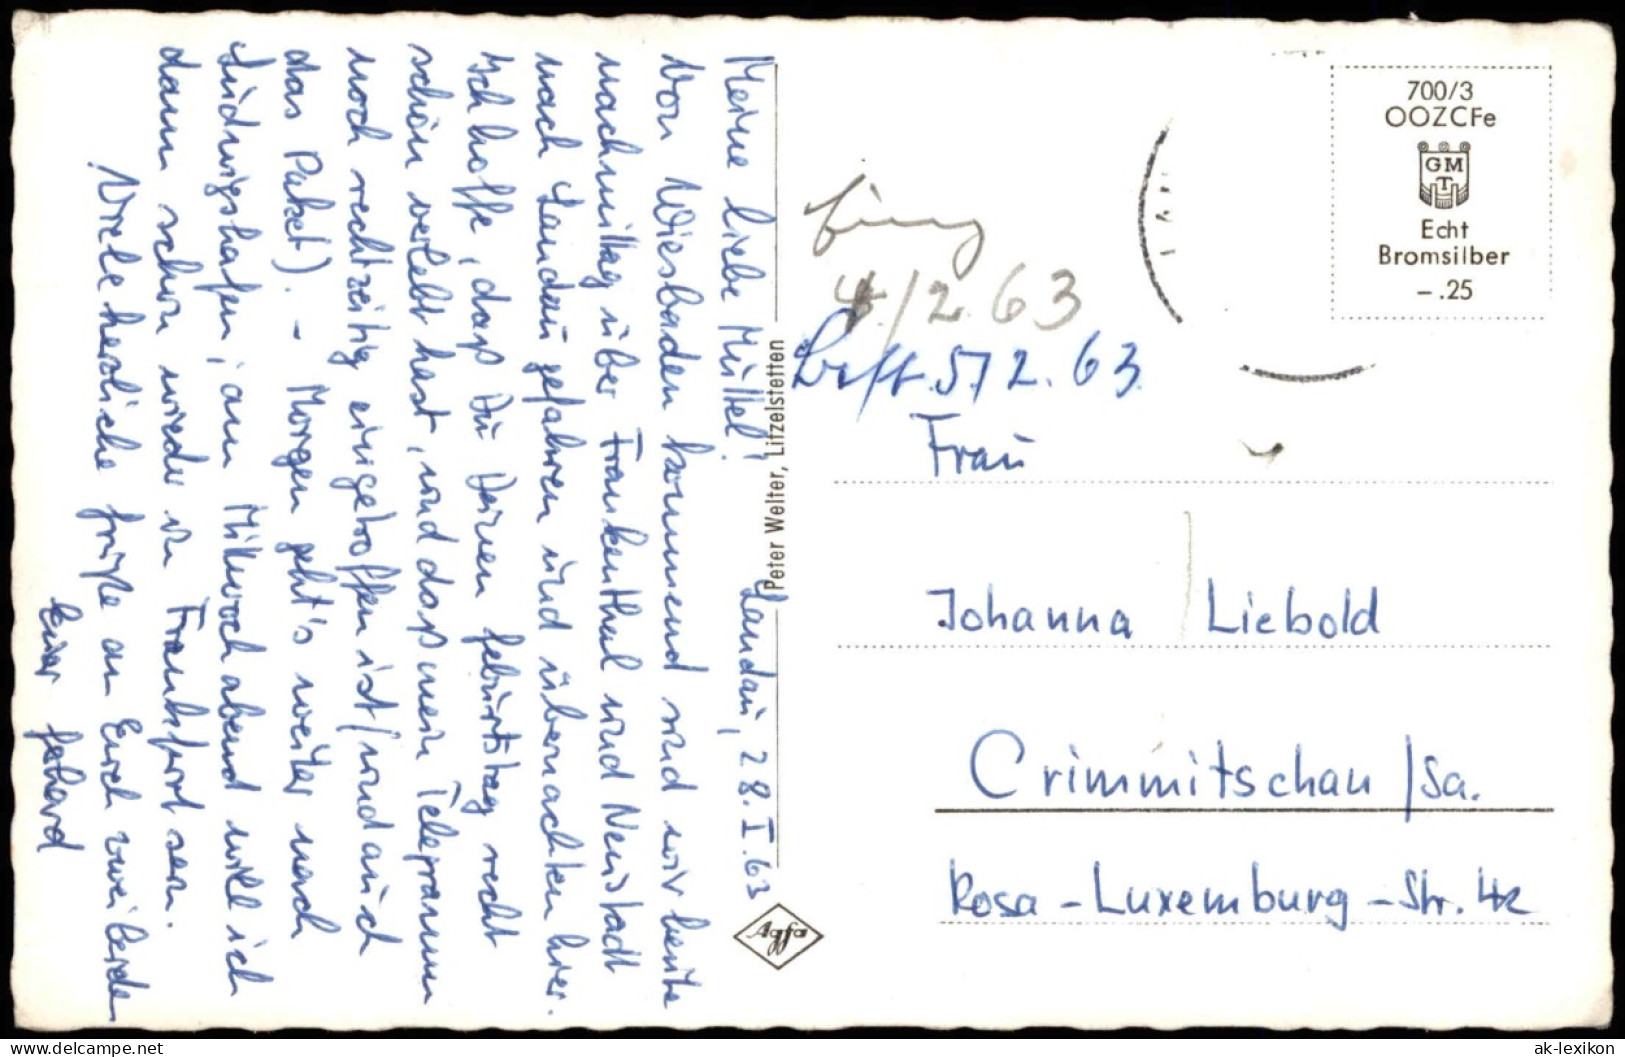 Meine liebe Mutter!
Landau, 28. I. 63
Von Wiesbaden kommend sind wir heute
nachmittag über Frankenthal und Neustadt
nach Landau gefahren und übernachten hier.
Ich hoffe, daß Du Deinen Geburtstag recht
schön verlebt hast, und daß mein Telegramm
noch rechtzeitig eingetroffen ist (und auch
das Paket). – Morgen geht's weiter nach
Ludwigshafen, am Mittwoch abend will ich
dann schon wieder in Frankfurt sein.
Viele herzliche Grüße an Euch zwei beide
Euer Gerhard
Peter Welter, Litzelstetten
Agfa
4./2. 63
5/2. 63
700/3
OOZCFe
GM
T
Echt
Bromsilber
-.25
Frau
Johanna Liebold
Crimmitschau /Sa.
Rosa-Luxemburg-Str. 42
delcampe.net
ak-lexikon